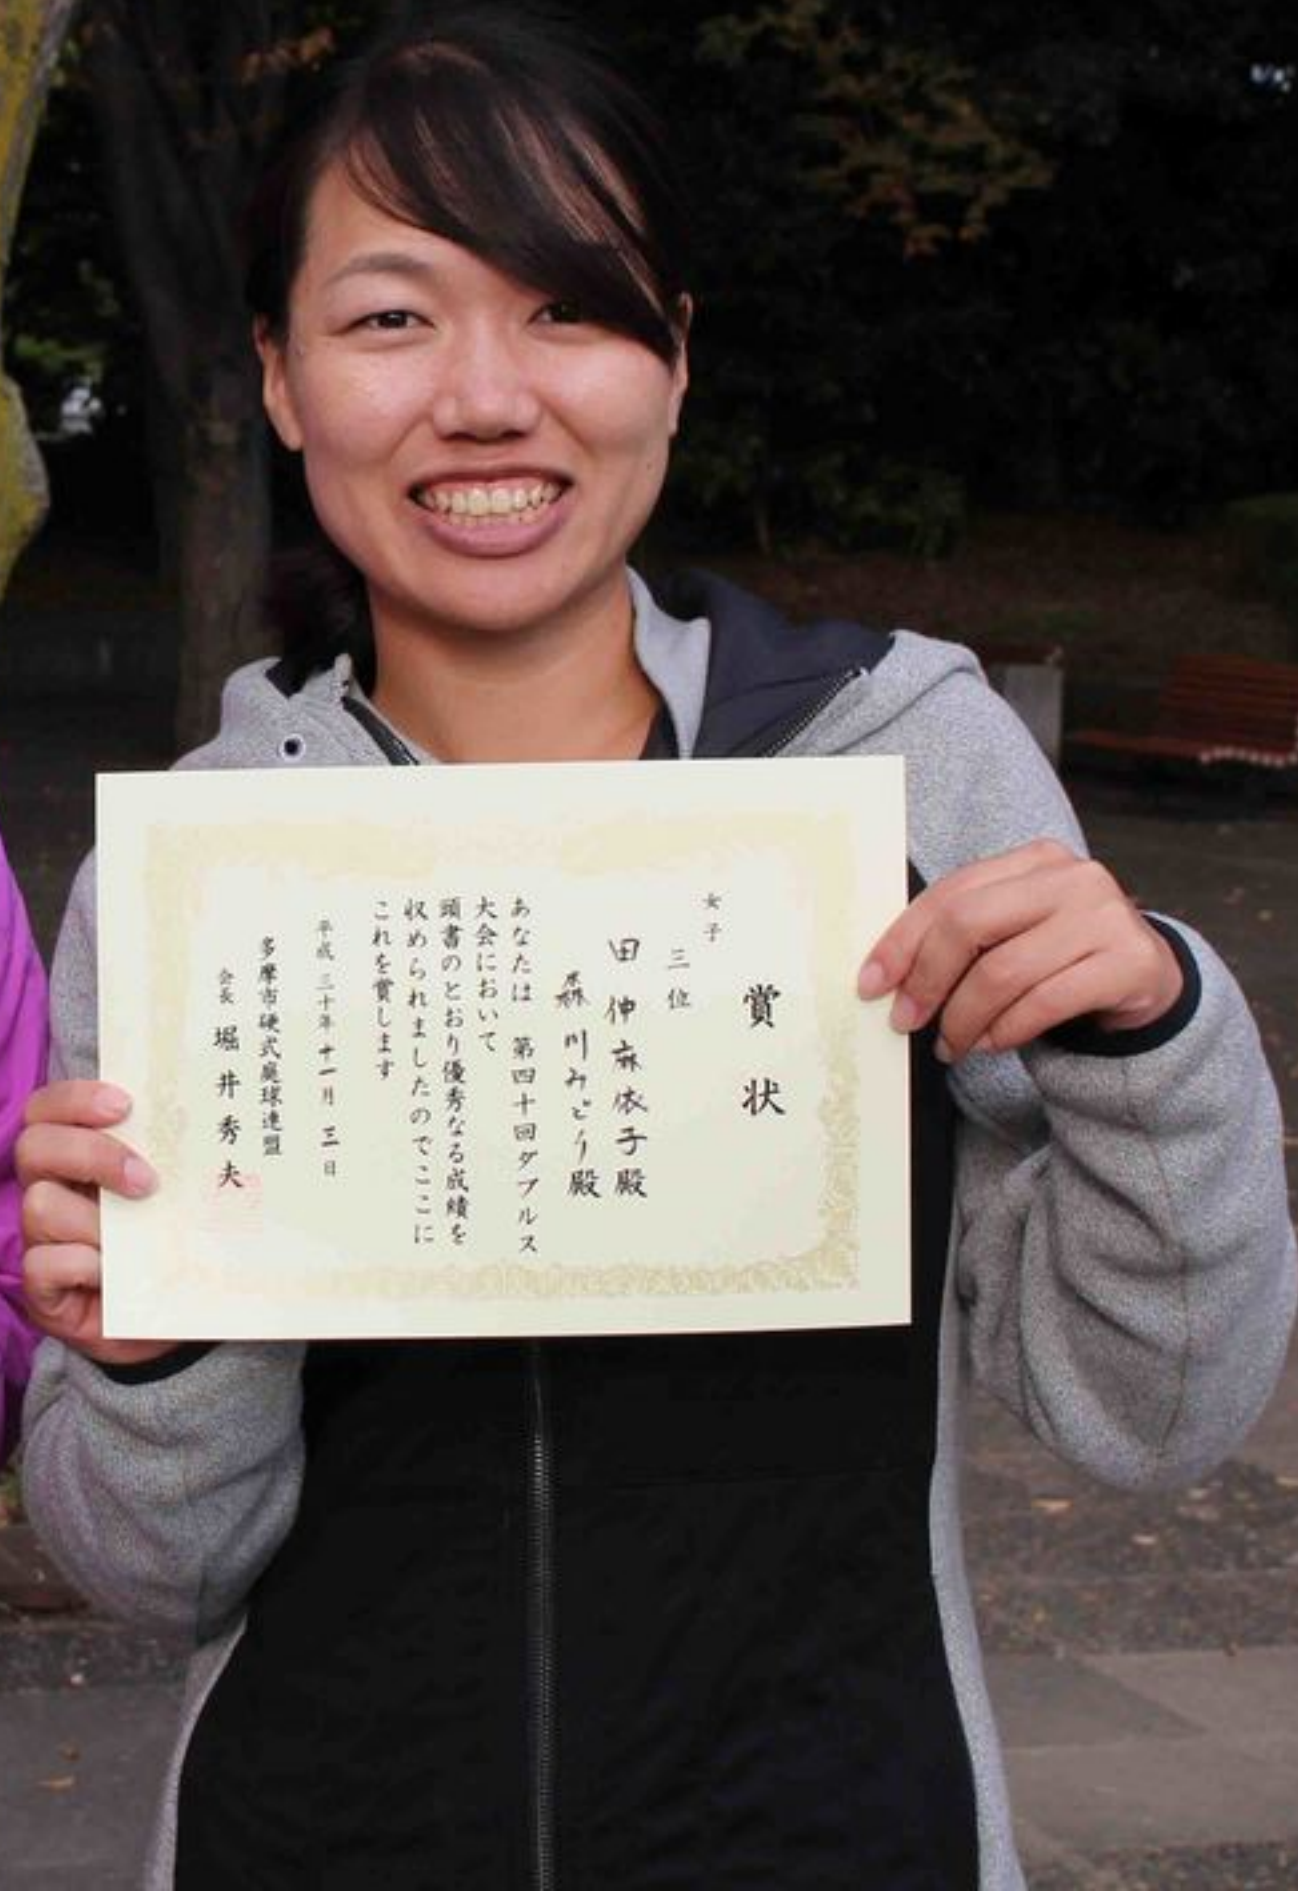 賞状
女子
三位
田仲麻依子殿
森川みどり殿
あなたは 第四十回ダブルス
大会において
頭書のとおり優秀なる成績を
収められましたのでここに
これを賞します
平成三十年十一月三日
多摩市硬式庭球連盟
会長 堀井秀夫